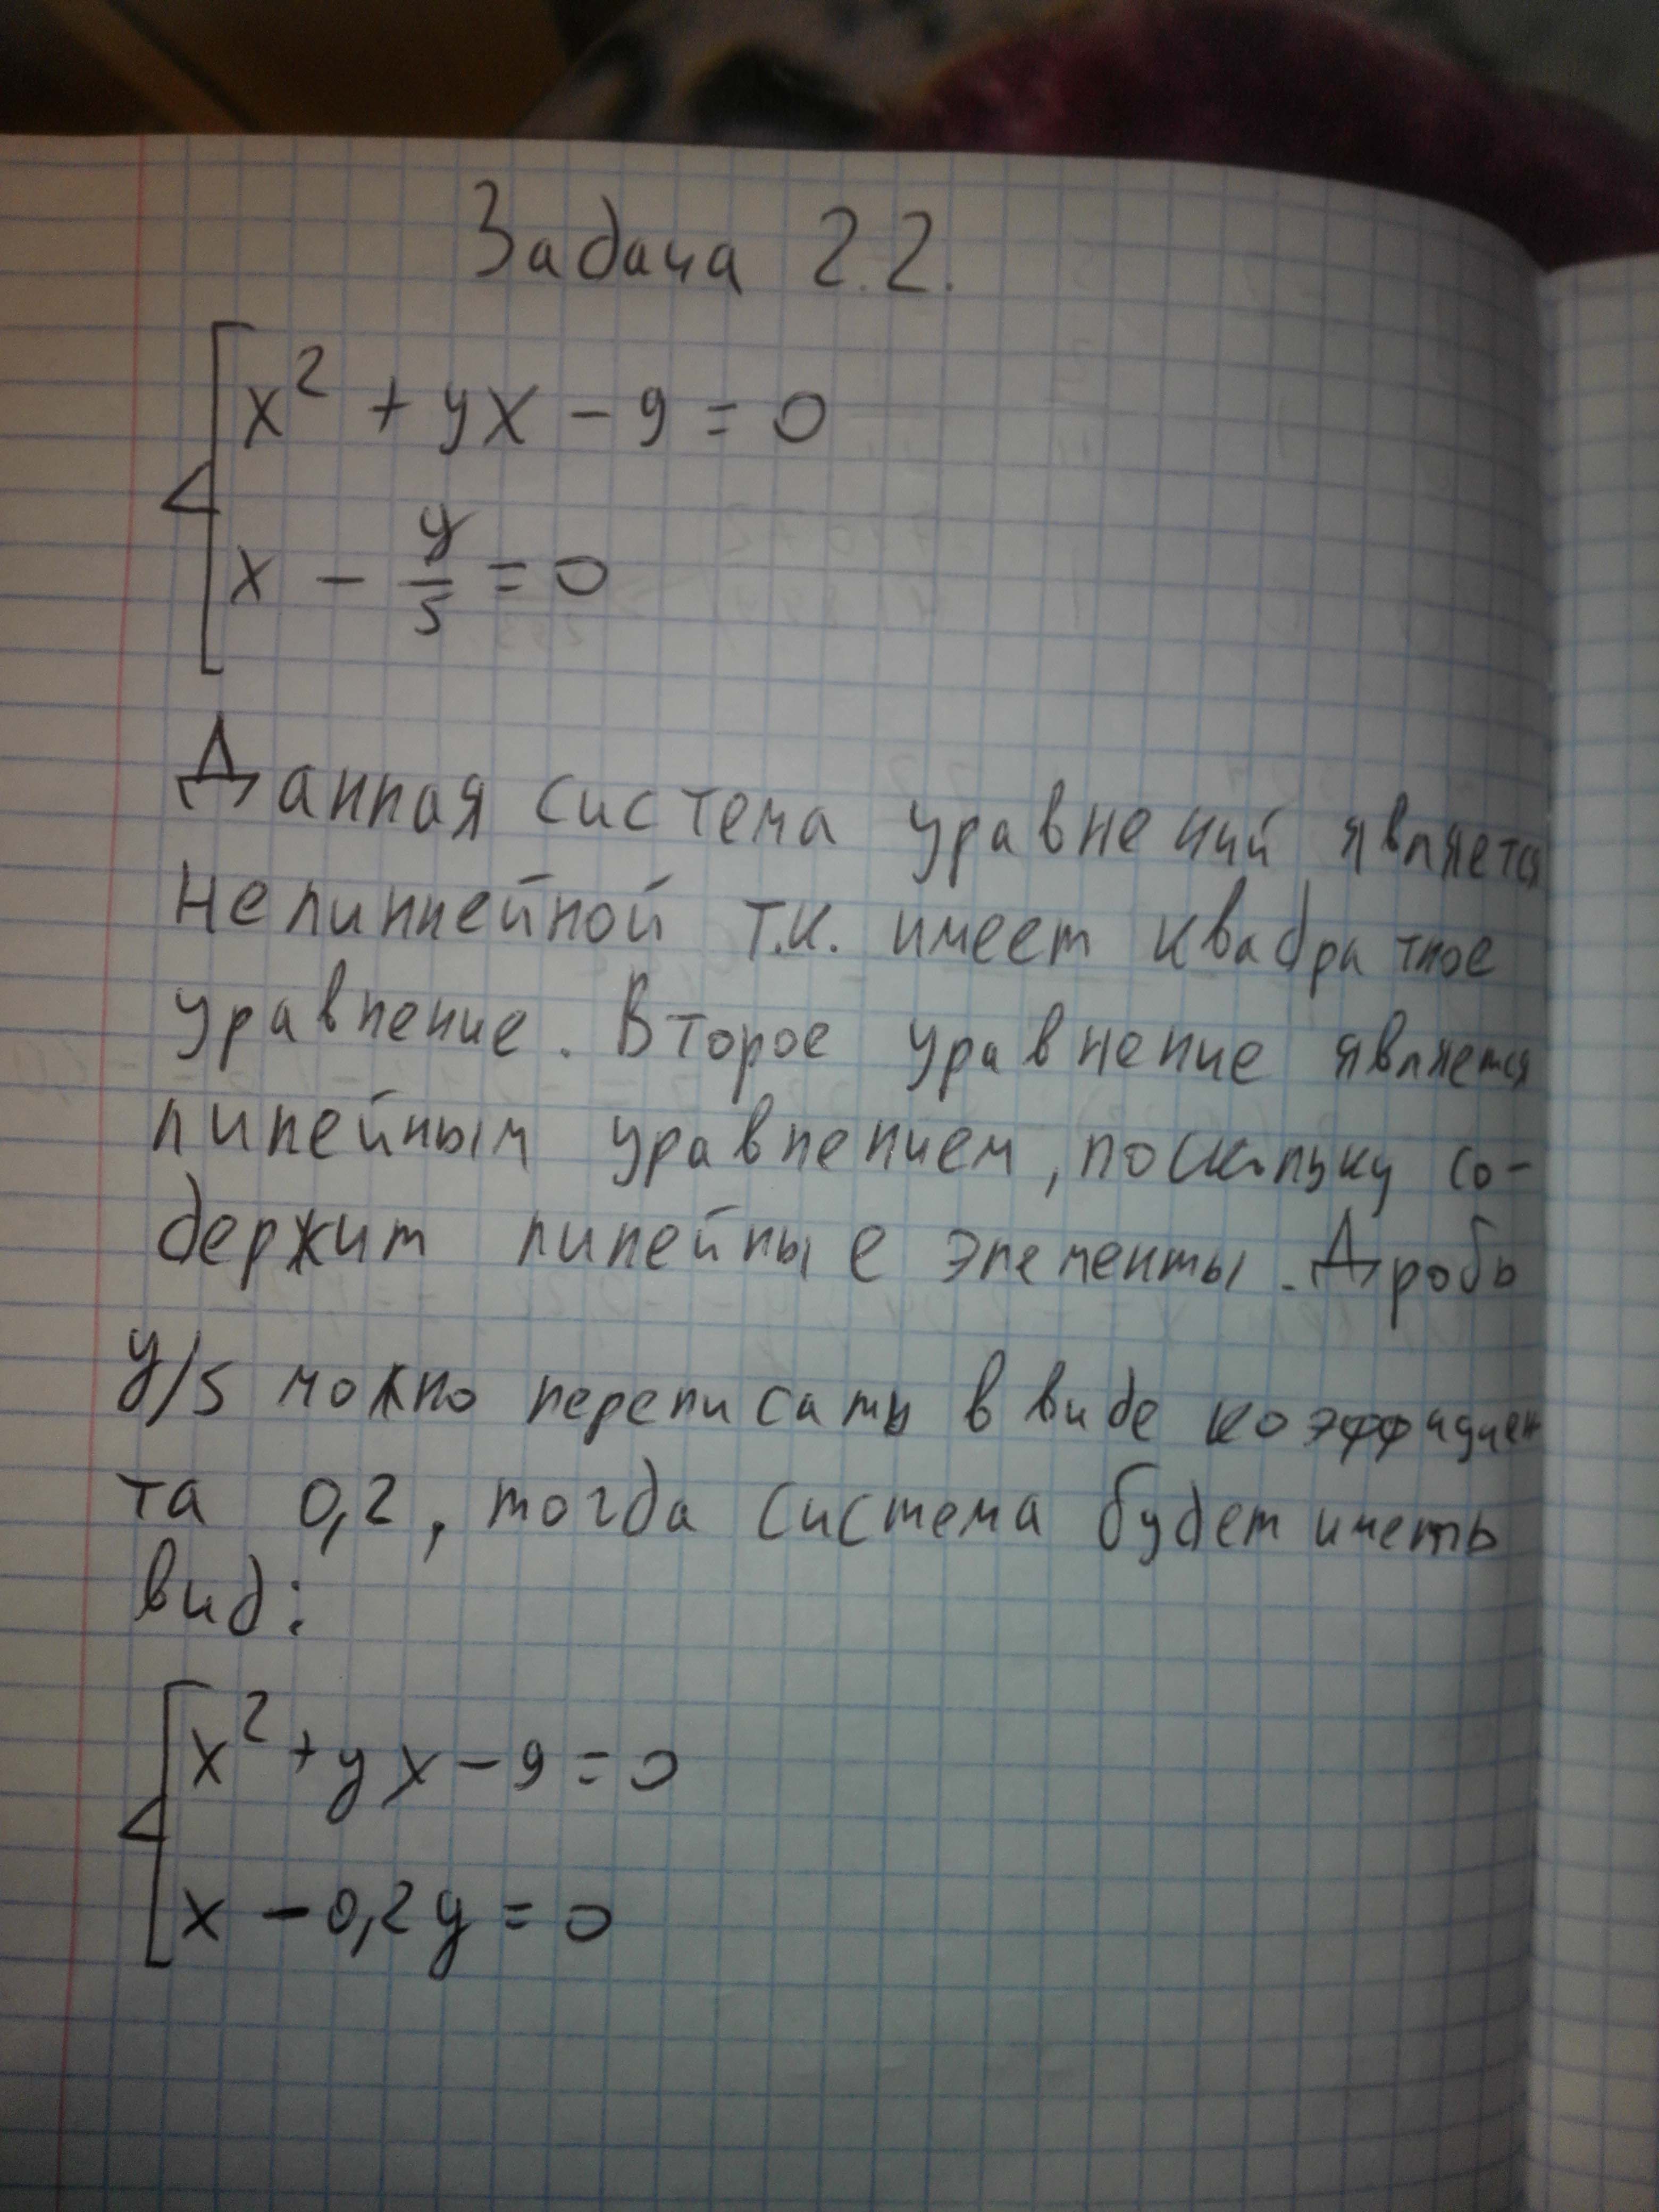 Задача 2.2.
x² + yx - 9 = 0
x - y/5 = 0
Данная система уравнений является
нелиннейной т.к. имеет квадратное
уравнение. Второе уравнение является
линейным уравнением, поскольку со-
держит линейные элементы. Дробь
y/5 можно переписать в виде коэффициен
та 0,2, тогда система будет иметь
вид:
x² + yx - 9 = 0
x - 0,2y = 0